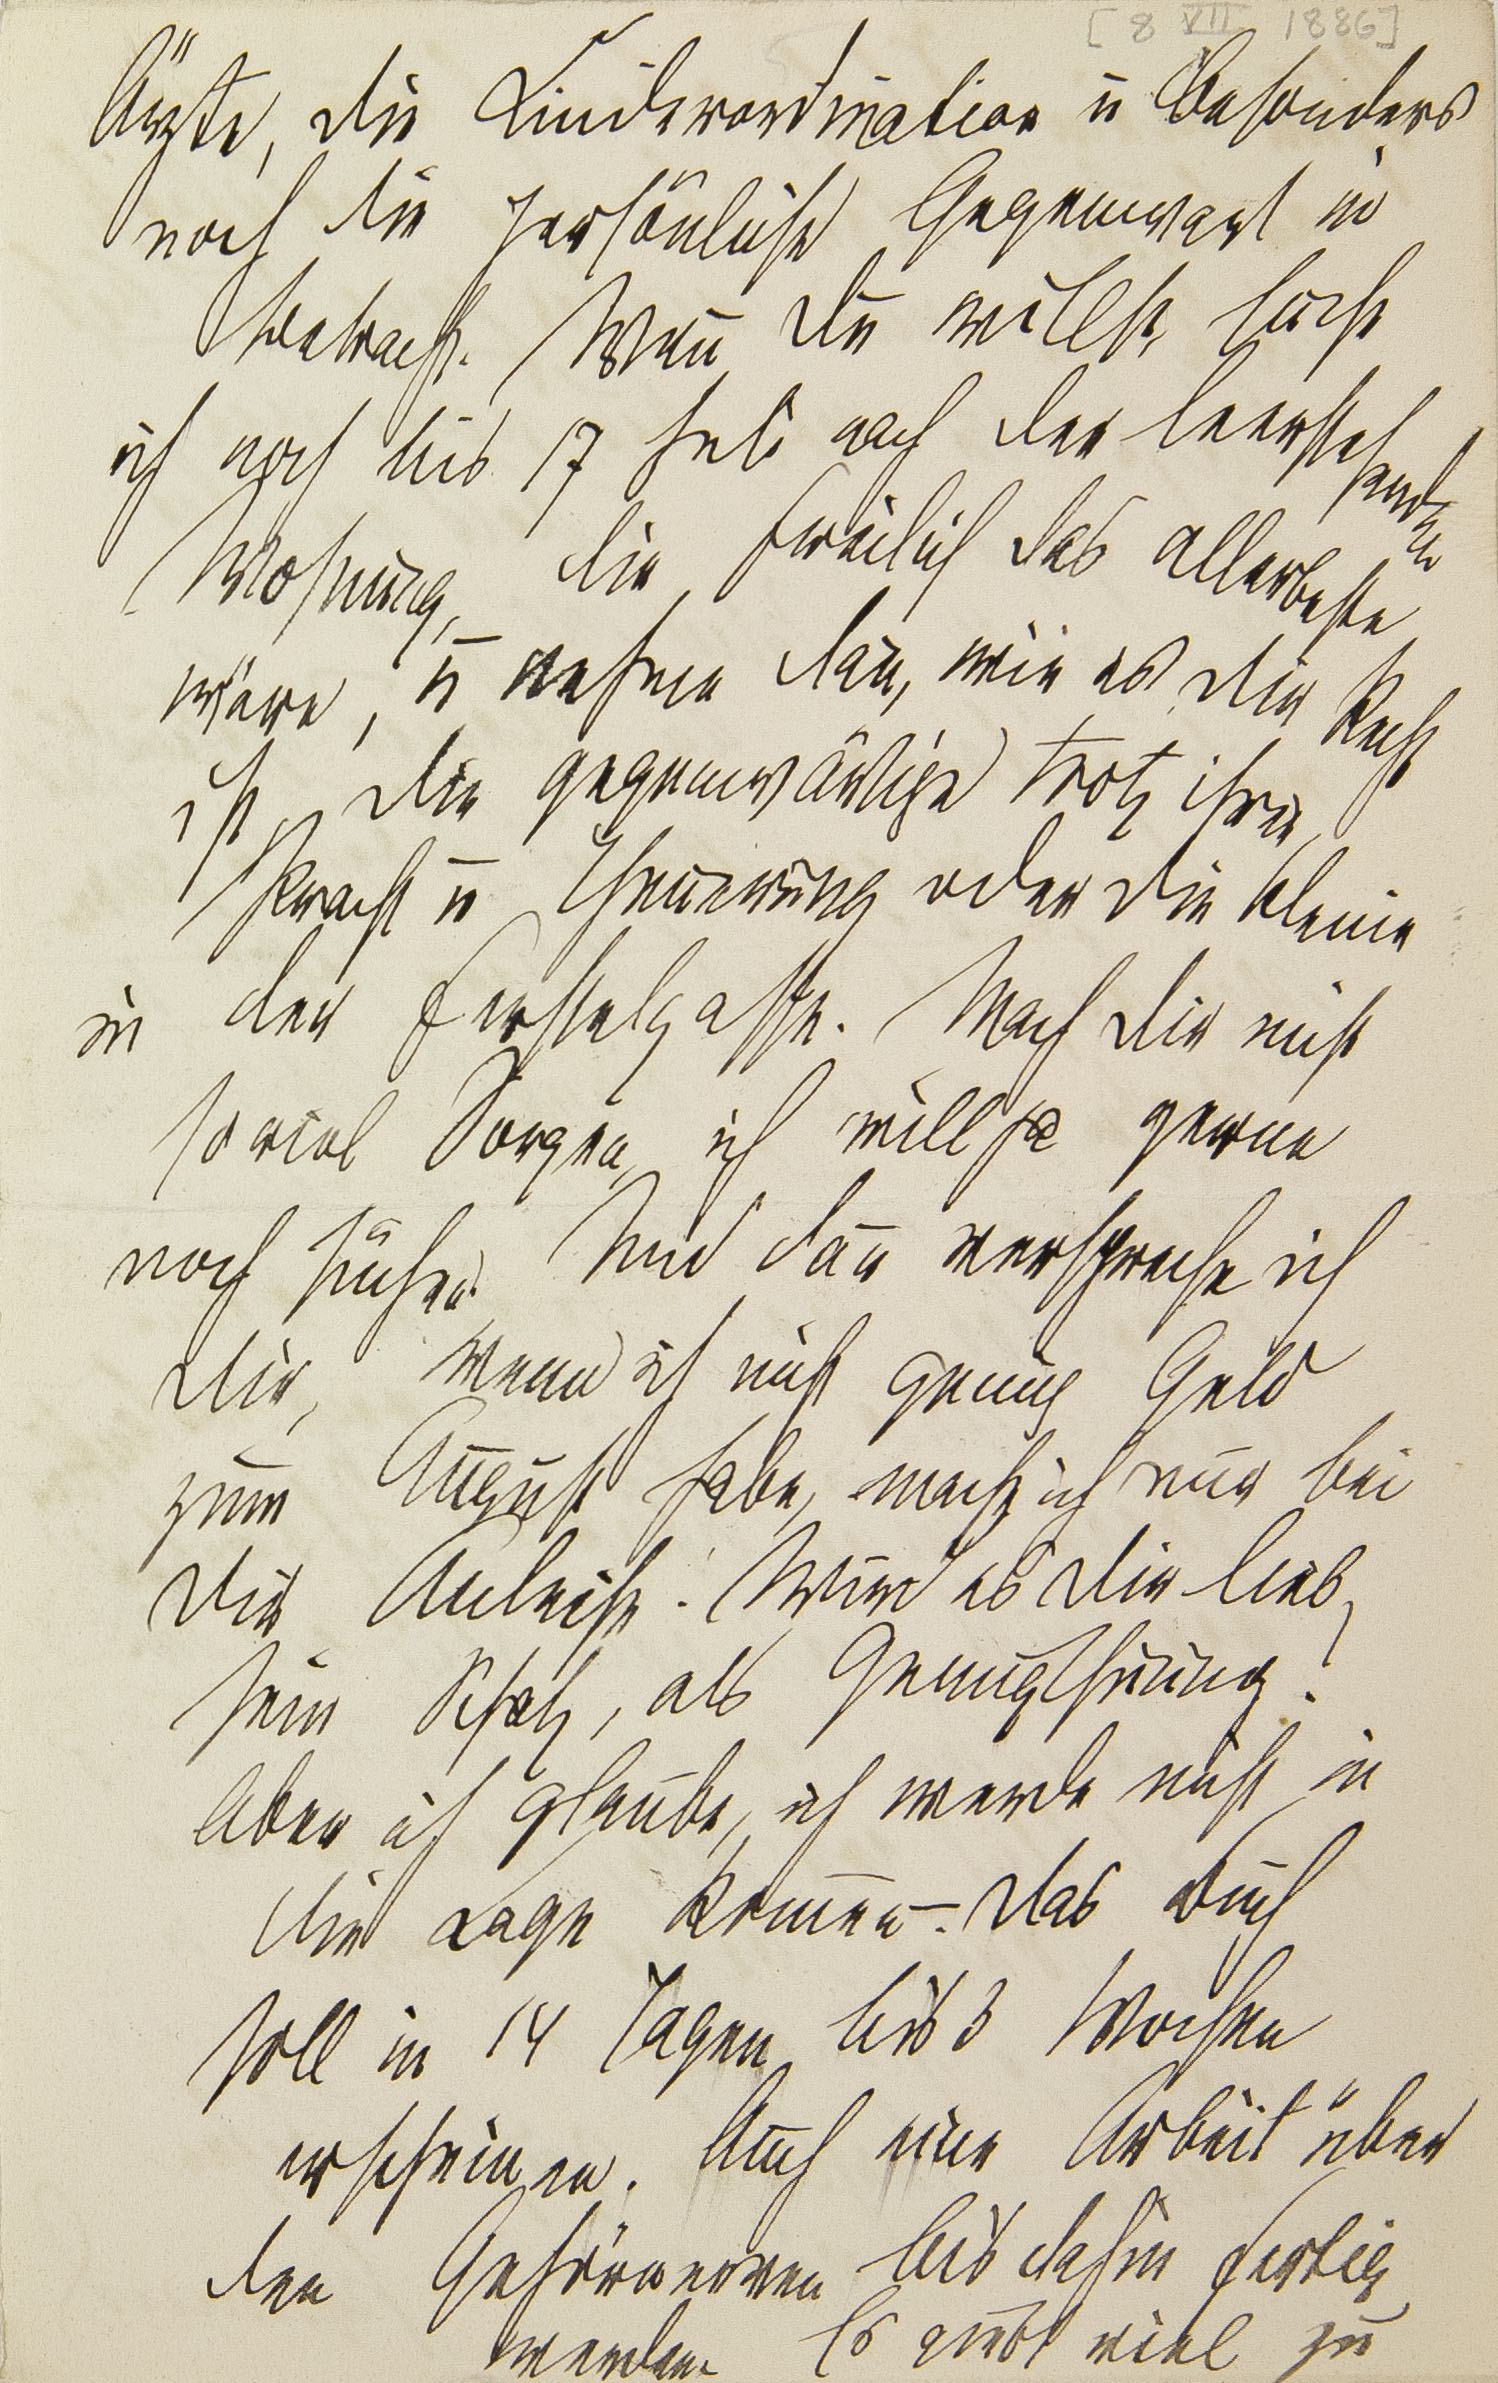 [8 VII 1886]
Ärzte, die Kinderordination u besonders
noch die persönliche Gegenwart in
Betracht. Wenn Du willst, suche
ich noch bis 17 Juli nach der leerstehenden
Wohnung, die freilich das allerbeste
wäre, u nehme dann, wie es Dir Recht
ist, die gegenwärtige trotz ihrer
Pracht u Theuerung oder die kleine
in der Ferstelgasse. Mach Dir nicht
soviel Sorgen, ich will ja gerne
noch suchen. Und dann verspreche ich
Dir, wenn ich nicht genug Geld
zum August habe, mache ich nur bei
Dir Anleihe. Wird es Dir lieb
sein Schatz, als Genugthuung?
Aber ich glaube, ich werde nicht in
die Lage kommen. Das Buch
soll in 14 Tagen bis 3 Wochen
erscheinen. Auch eine Arbeit über
den Gehörnerven bis dahin fertig
werden. Es giebt viel zu